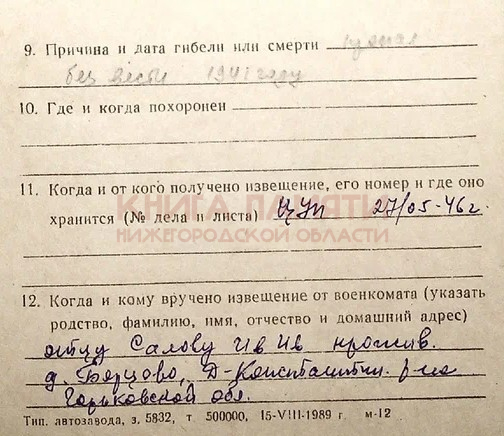 9. Причина и дата гибели или смерти пропал
без вести 1941 году
10. Где и когда похоронен
11. Когда и от кого получено извещение, его номер и где оно
хранится (№ дела и листа) ЦУП 27/05-46г.
КНИГА ПАМЯТИ
НИЖЕГОРОДСКОЙ ОБЛАСТИ
12. Когда и кому вручено извещение от военкомата (указать
родство, фамилию, имя, отчество и домашний адрес)
отцу Салову Ив Ив прожив.
д. Д-Константин. р-на
Горьковской обл.
Тип. автозавода, з. 5832, т 500000, 15-VIII-1989 г. м-12